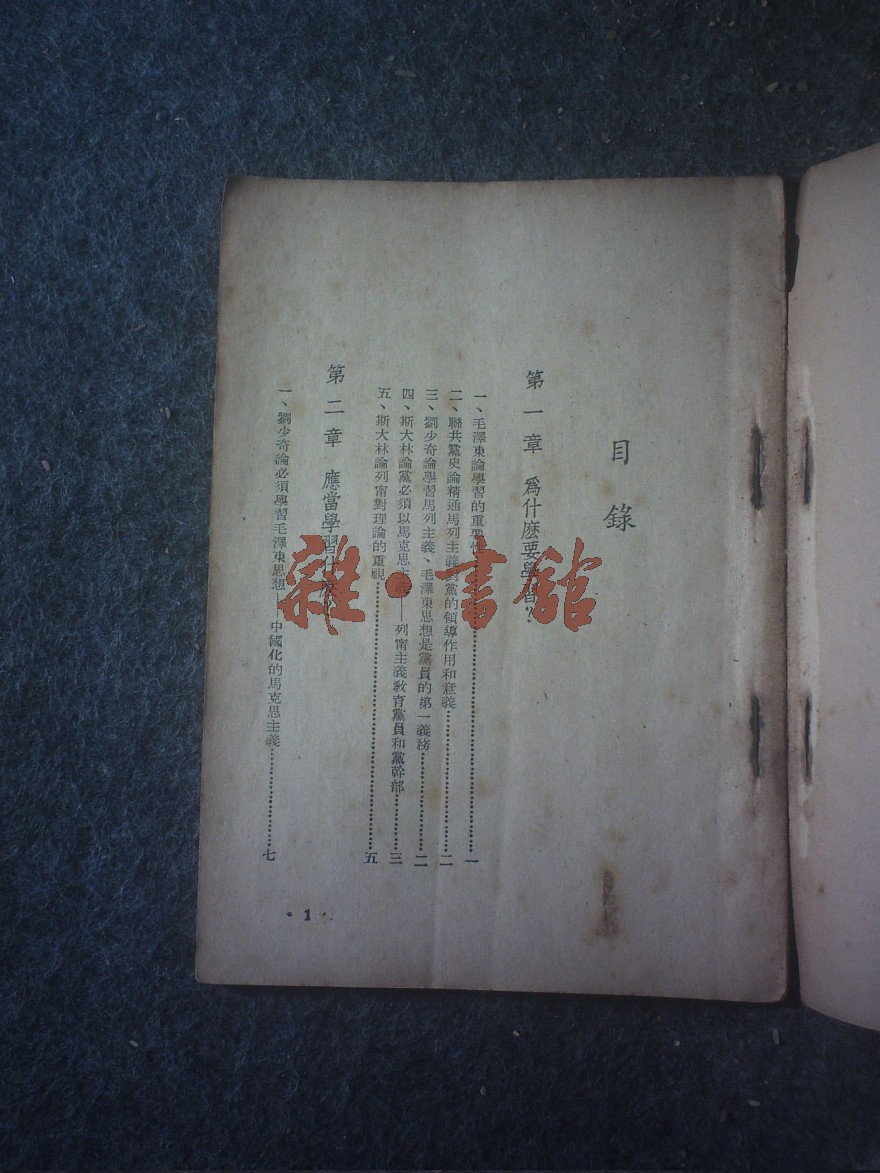 目錄
第一章 爲什麽要學習？
一、毛澤東論學習的重要性……一
二、聯共黨史論精通馬列主義對黨的領導作用和意義……二
三、劉少奇論學習馬列主義、毛澤東思想是黨員的第一義務……二
四、斯大林論黨必須以馬克思主義——列甯主義教育黨員和黨幹部……三
五、斯大林論列甯對理論的重視……五
第二章 應當學習什麽？
一、劉少奇論必須學習毛澤東思想——中國化的馬克思主義……七
·1·
雜·書館